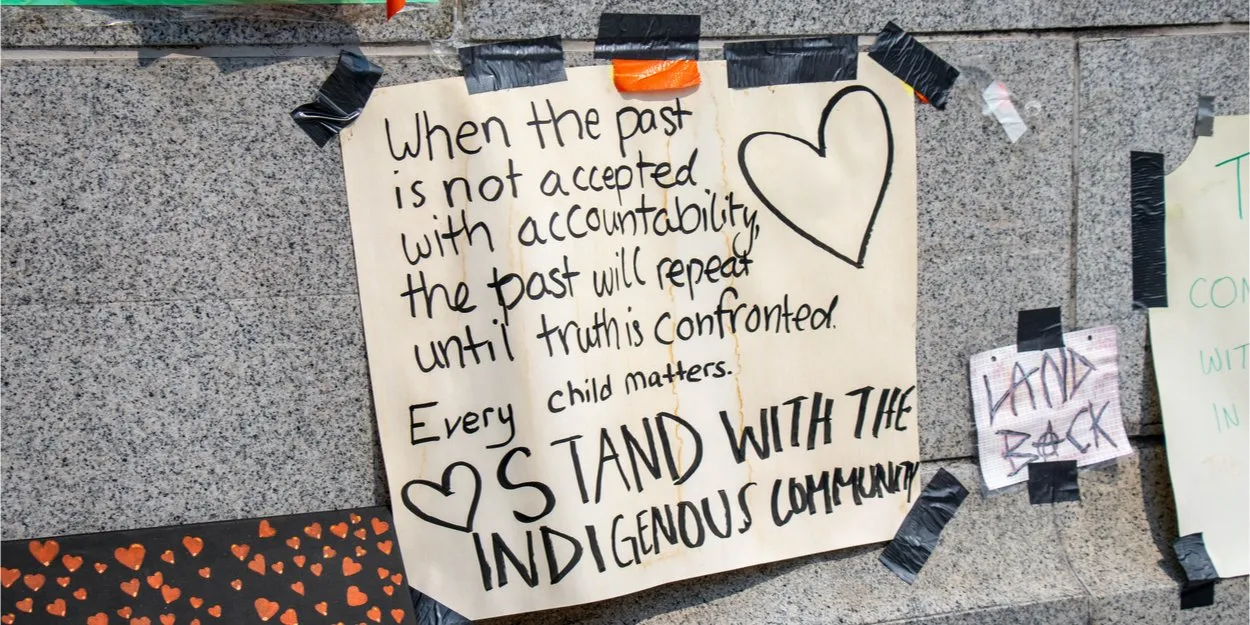 When the past
is not accepted
with accountability,
the past will repeat
until truth is confronted.
Every child matters.
STAND WITH THE
INDIGENOUS COMMUNITY
LAND
BACK
T
CON
WIT
IN